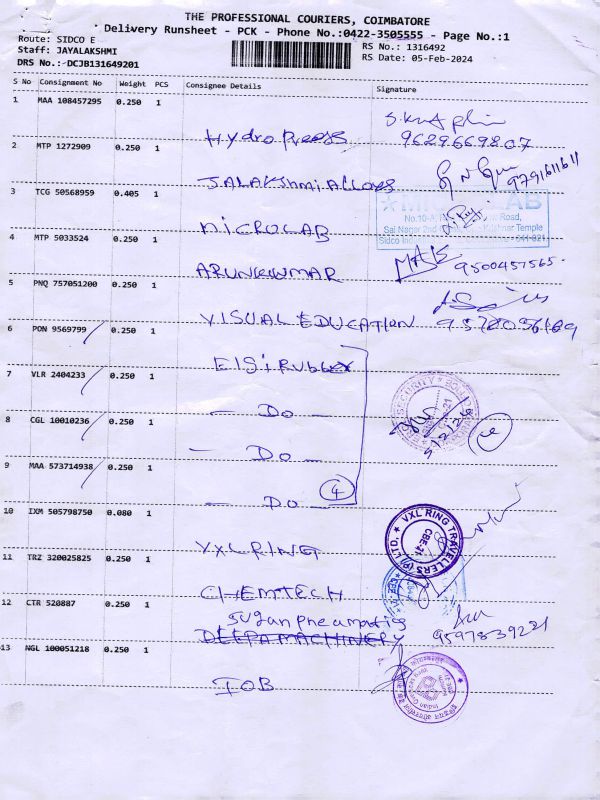 THE PROFESSIONAL COURIERS, COIMBATORE
Delivery Runsheet - PCK - Phone No.:0422-3505555 - Page No.:1
Route: SIDCO E
Staff: JAYALAKSHMI
DRS No.:-DCJB131649201
RS No.: 1316492
RS Date: 05-Feb-2024
S No Consignment No Weight PCS Consignee Details Signature
1 MAA 108457295 0.250 1
Hydro Press 9629669807
2 MTP 1272909 0.250 1
JALAKShMi ALLOYS 9791611611
3 TCG 50568959 0.405 1
MICROLAB
MICROLAB
Sai Nagar 2nd
4 MTP 5033524 0.250 1
ARUNKUMAR 9500457565
5 PNQ 757051200 0.250 1
VISUAL EDUCATION
6 PON 9569799 0.250 1
7 VLR 2404233 0.250 1
- Do -
8 CGL 10010236 0.250 1
- Do -
SECURITY
5/2/24
9 MAA 573714938 0.250 1
- Do - 4
10 IXM 505798750 0.080 1
VXL RING
VXL RING TRAVELLERS (P) LTD.
CBE-21
11 TRZ 320025825 0.250 1
CHEMTECH
12 CTR 520887 0.250 1
Sugan pneumatics
DEEPA MACHINERY
9597839221
13 NGL 100051218 0.250 1
IOB